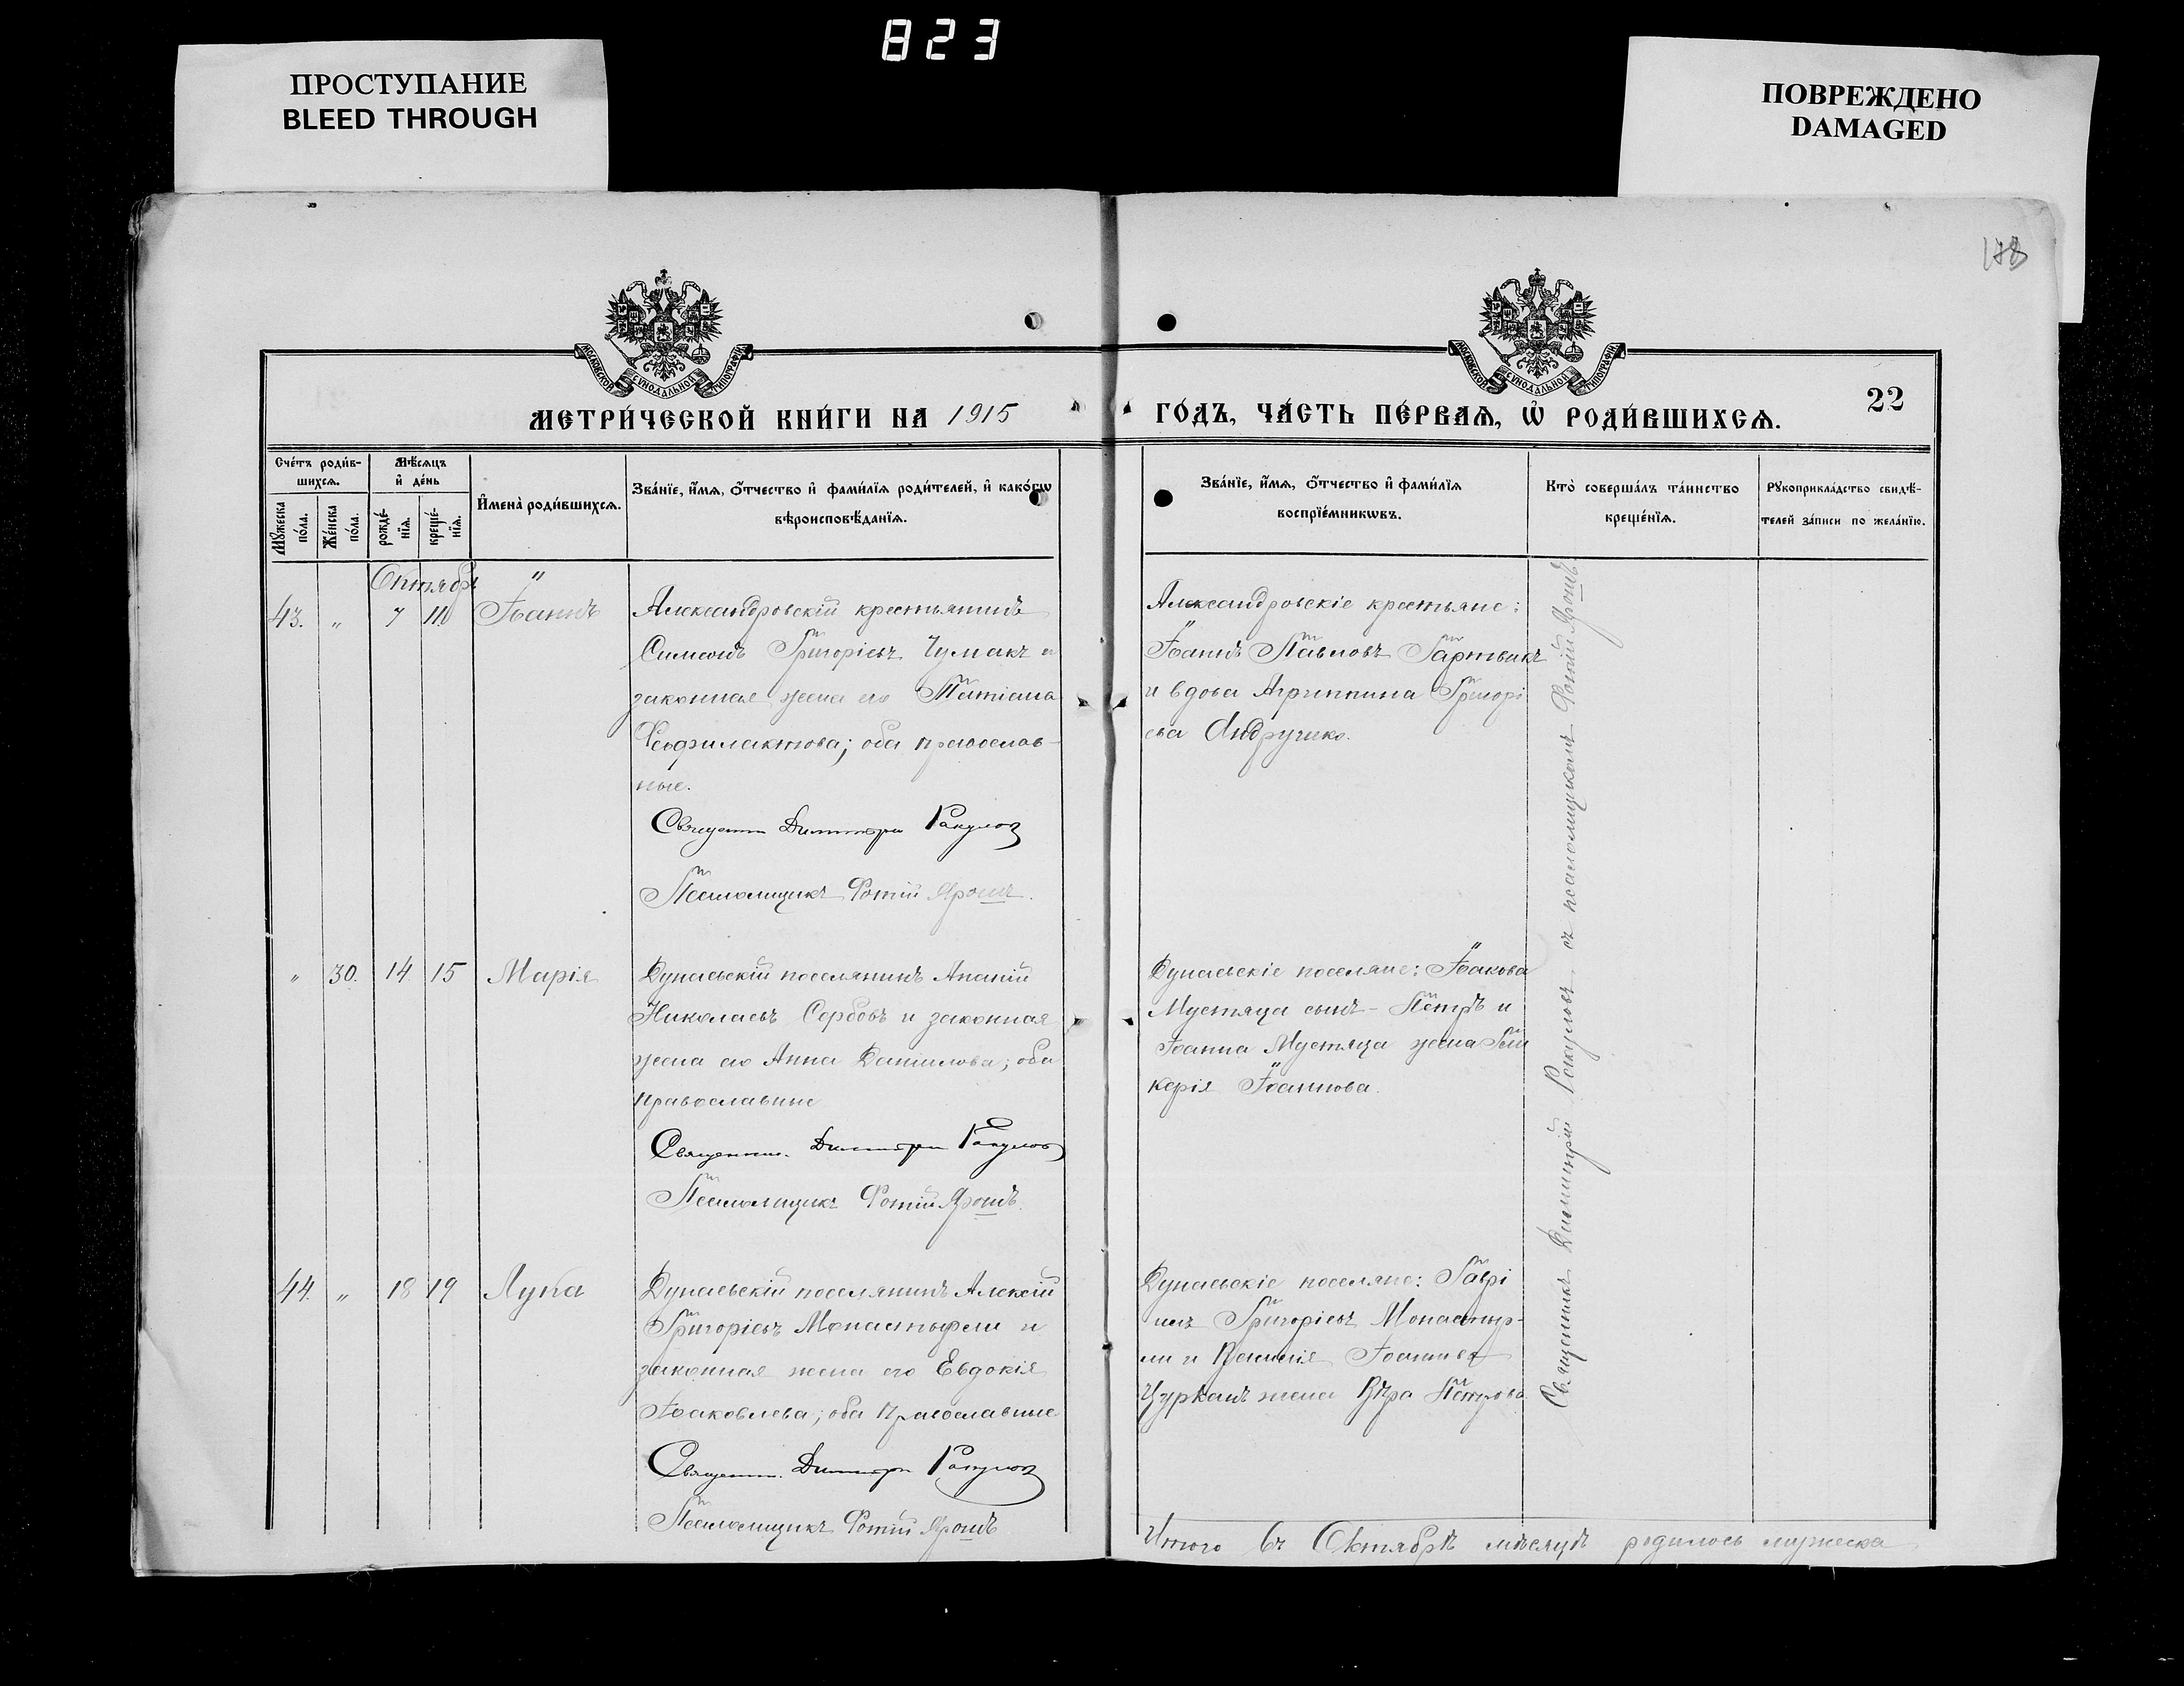 823
ПРОСТУПАНИЕ
BLEED THROUGH
ПОВРЕЖДЕНО
DAMAGED
178
МОСКОВСКОЙ СѴНОДАЛЬНОЙ ТИПОГРАФІИ
МОСКОВСКОЙ СѴНОДАЛЬНОЙ ТИПОГРАФІИ
МЕТРИ́ЧЕСКОЙ КНИ́ГИ НА 1915
ГО́ДЪ, ЧА́СТЬ ПЕ́РВАѦ, Ѡ҆ РОДИ́ВШИХСѦ.
22
Сче́тъ роди́в-
шихсѧ.
Мꙋ́жеска по́ла.
Же́нска по́ла.
Мѣ́сѧцъ
и҆ де́нь
рожде́-
нїѧ.
креще́-
нїѧ.
И҆мена̀ роди́вшихсѧ.
Зва́нїе, и҆́мѧ, ѻ҆́тчество и҆ фами́лїѧ роди́телей, и҆ како́гѡ
вѣроисповѣ́данїѧ.
Зва́нїе, и҆́мѧ, ѻ҆́тчество и҆ фами́лїѧ
воспрїе́мникѡвъ.
Кто̀ соверша́лъ та́инство
креще́нїѧ.
Рꙋкоприкла́дство свидѣ́-
телей за́писи по жела́нїю.
Октябрь
43. " 7 11 Іоаннъ
Александровскій крестьянинъ
Симеонъ Григоріевъ Чумакъ и
законная жена его Татіана
Феофилактова; оба православ-
ные.
Священн. Димитрій Ракулов
Псаломщикъ Фотій Ярошъ.
Александровскіе крестьяне:
Іоаннъ Павловъ
и вдова Агриппина Григорі
ева Андрущко.
" 30. 14 15 Марія
Дунаевскій поселянинъ Ананій
Николаевъ Сербовъ и законная
жена его Анна Даніилова; оба
православные
Священник. Димитрій Ракулов
Псаломщикъ Фотій Ярошъ.
Дунаевскіе поселяне: Іоакова
Мустяца сынъ - Петръ и
Іоанна Мустяца жена Гли
керія Іоаннова.
44. " 18 19 Лука
Дунаевскій поселянинъ Алексій
Григоріевъ Монастырли и
законная жена его Евдокія
Іоаковлева; оба православные
Священн. Димитрій Ракулов
Псаломщикъ Фотій Ярошъ
Дунаевскіе поселяне: Гаврі
илъ Григоріевъ Монастыр-
ли и Василія Іоаннова
Цурканъ жена Вѣра Петрова
Священникъ Димитрій Ракуловъ съ псаломщикомъ Фотій Ярошъ
Итого въ Октябрѣ мѣсяцѣ родилось мужеска